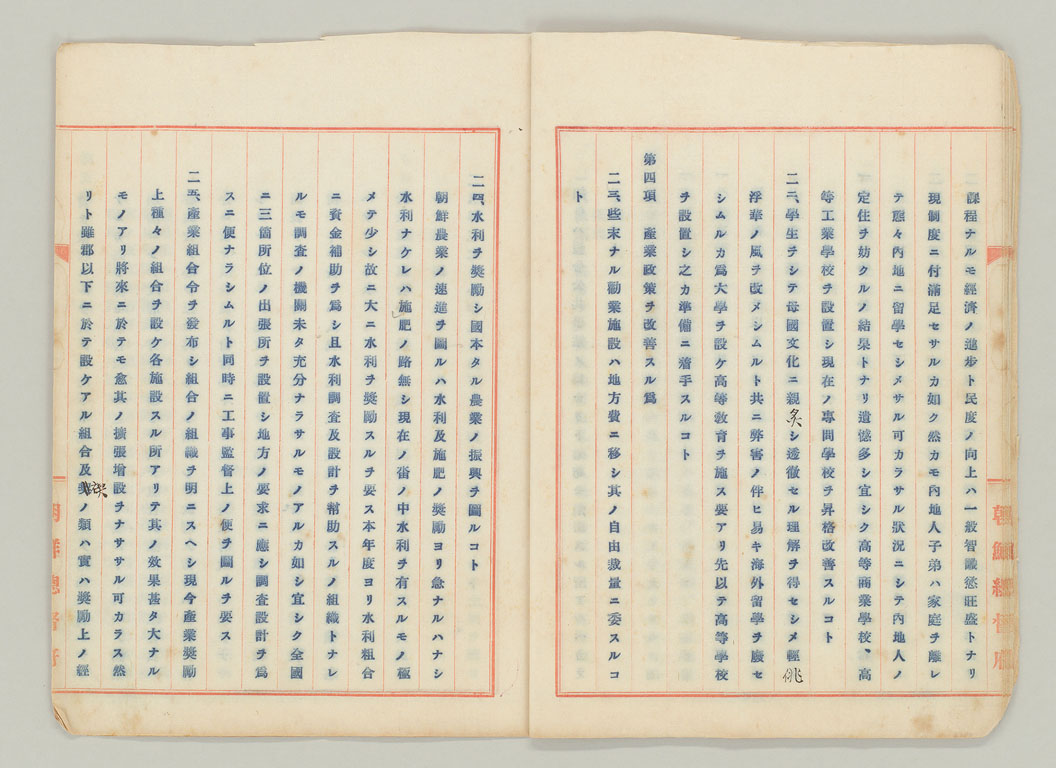 課程ナルモ經濟ノ進步ト民度ノ向上ハ一般智識慾旺盛トナリ
現制度ニ付滿足セサルカ如ク然カモ內地人子弟ハ家庭ヲ離レ
テ態々內地ニ留學セシメサル可カラサル狀況ニシテ內地人ノ
定住ヲ妨クルノ結果トナリ遺憾多シ宜シク高等商業學校、高
等工業學校ヲ設置シ現在ノ專門學校ヲ昇格改善スルコト
二二、學生ヲシテ母國文化ニ親炙シ透徹セル理解ヲ得セシメ輕佻
浮華ノ風ヲ改メシムルト共ニ弊害ノ伴ヒ易キ海外留學ヲ廢セ
シムルカ爲大學ヲ設ケ高等敎育ヲ施ス要アリ先以テ高等學校
ヲ設置シ之カ準備ニ着手スルコト
第四項 產業政策ヲ改善スル爲
二三、些末ナル勸業施設ハ地方費ニ移シ其ノ自由裁量ニ委スルコ
ト
二四、水利ヲ奬勵シ國本タル農業ノ振興ヲ圖ルコト
朝鮮農業ノ速進ヲ圖ルハ水利及施肥ノ奬勵ヨリ急ナルハナシ
水利ナケレハ施肥ノ路無シ現在ノ畓ノ中水利ヲ有スルモノ極
メテ少シ故ニ大ニ水利ヲ奬勵スルヲ要ス本年度ヨリ水利組合
ニ資金補助ヲ爲シ且水利調査及設計ヲ幇助スルノ組織トナレ
ルモ調査ノ機關未タ充分ナラサルモノアルカ如シ宜シク全國
ニ三箇所位ノ出張所ヲ設置シ地方ノ要求ニ應シ調査設計ヲ爲
スニ便ナラシムルト同時ニ工事監督上ノ便ヲ圖ルヲ要ス
二五、產業組合令ヲ發布シ組合ノ組織ヲ明ニスヘシ現今產業奬勵
上種々ノ組合ヲ設ケ各施設スル所アリテ其ノ效果甚タ大ナル
モノアリ將來ニ於テモ愈其ノ擴張增設ヲナササル可カラス然
リト雖郡以下ニ於テ設ケアル組合及契ノ類ハ實ハ奬勵上ノ經
朝鮮總督府
朝鮮總督府